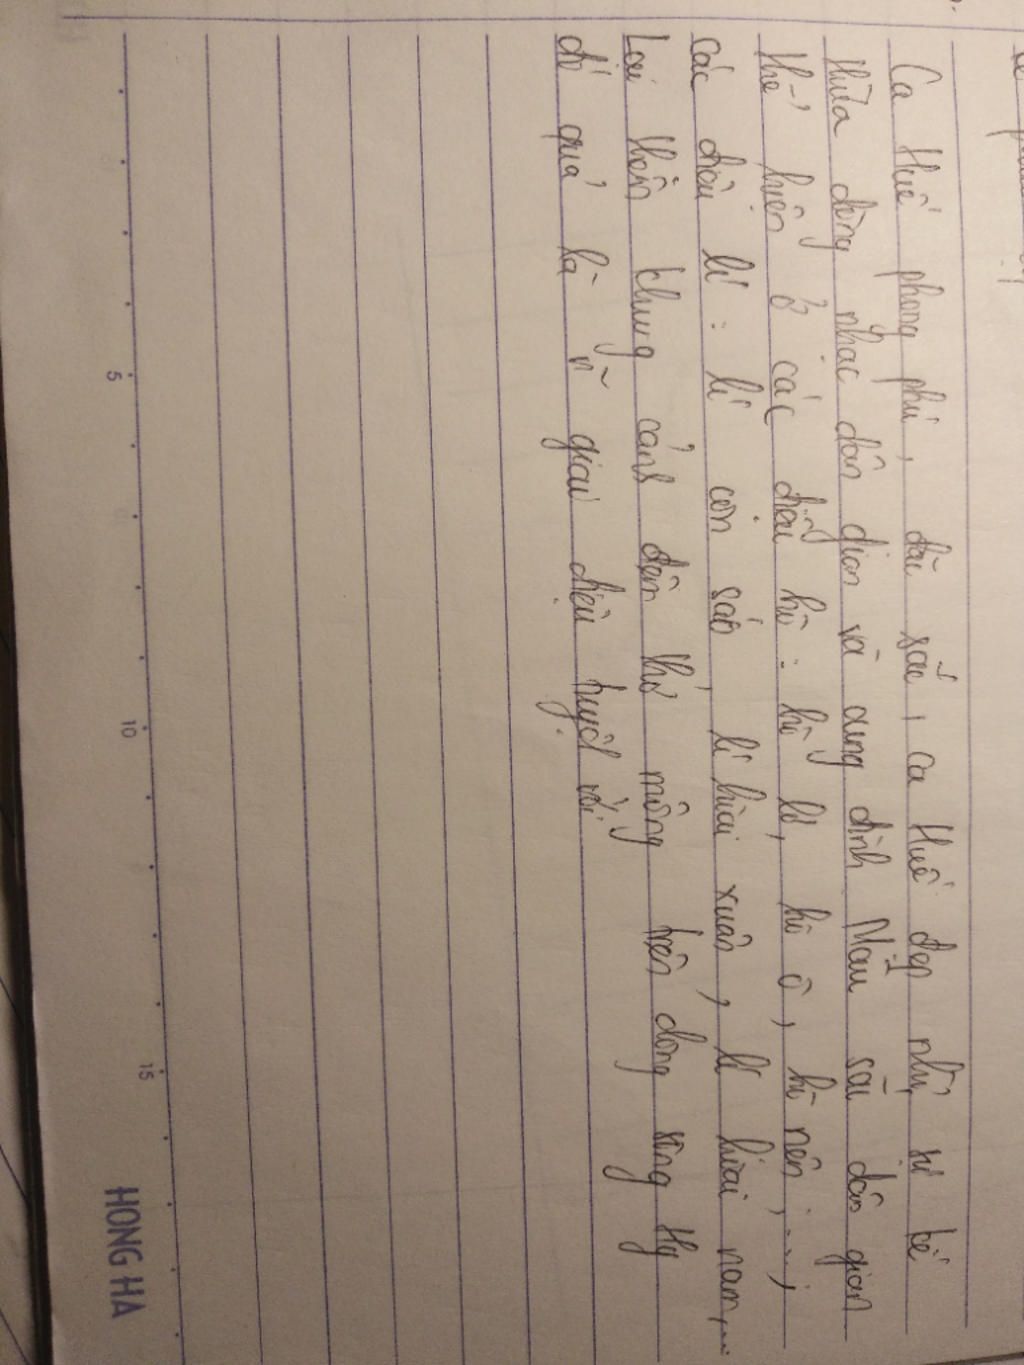 Ca Huế phong phú, đặc sắc, ca Huế đẹp nhờ sự kế
thừa dòng nhạc dân gian và cung đình. Màu sắc dân gian
thể hiện ở các điệu hò: hò lơ, hò ô, hò nện,....,
các điệu lí: lí con sáo, lí hoài xuân, lí hoài nam,...
Lại thêm khung cảnh đêm thơ mộng trên dòng sông thy
đó quả là n~ giai điệu tuyệt vời.
5
10
15
HONG HA